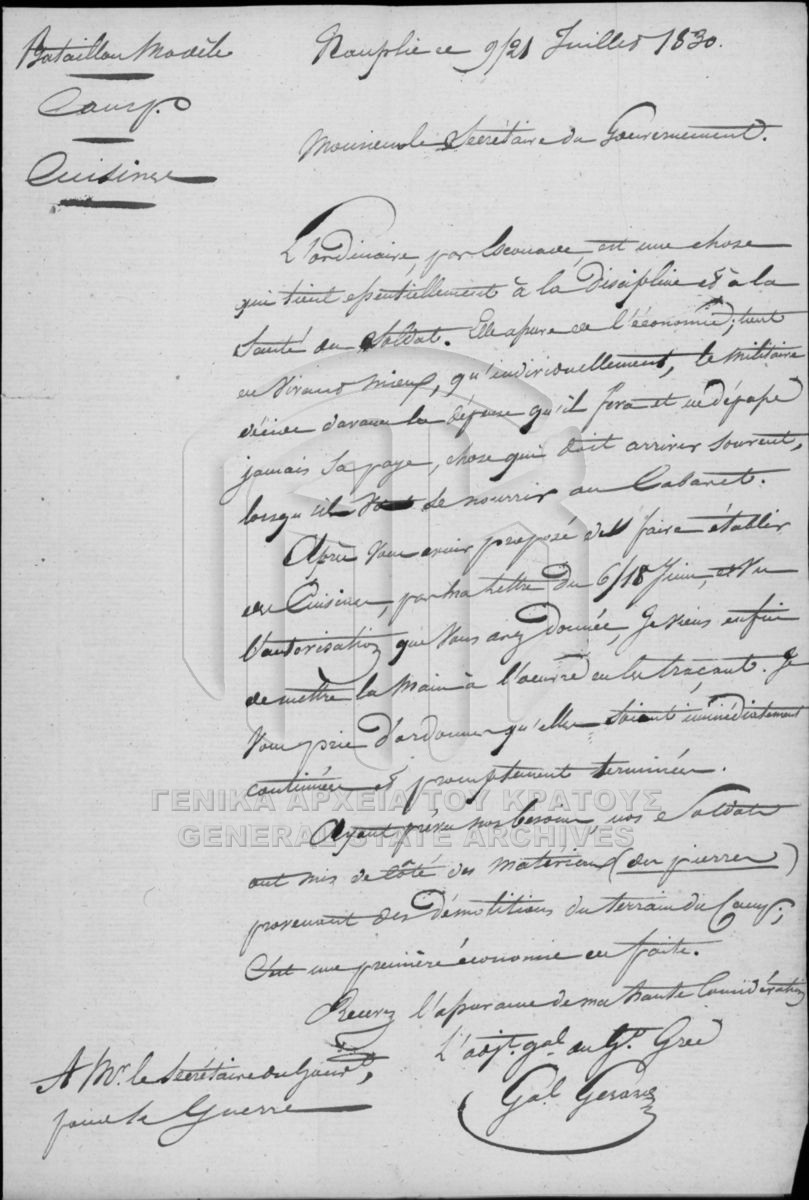 Bataillon Modèle
Camp.
Cuisines
Nauplie ce 9/21 Juillet 1830.
Monsieur le Secrétaire du Gouvernement.
L'ordinaire, par Escouade, est une chose
qui tient essentiellement à la Discipline et à la
Santé du Soldat. Elle assure de l'économie, tout
en vivant mieux, qu'individuellement, le militaire
décide d'avance la dépense qu'il fera et ne dépasse
jamais sa paye, chose qui doit arriver souvent,
lorsqu'il se nourrir au Cabaret.
Après Vous avoir proposé de faire établir
des Cuisines, par ma Lettre du 6/18 Juin, et Vu
l'autorisation que Vous avez donnée, Je viens enfin
de mettre la main à l'oeuvre en les traçant. Je
Vous prie d'ordonner qu'elles soient immédiatement
continuées et promptement terminées.
Ayant prévu nos besoins, nos Soldats
ont mis de côté des matériaux (des pierres)
provenant des démolitions du terrain du Camp;
C'est une première économie de faite.
Recevez l'assurance de ma haute Considération
L'adjt. gal. au Gt. Grec
Gal. Gérard
A Mr. le Secrétaire du Gouvt,
pour la Guerre
ΓΕΝΙΚΑ ΑΡΧΕΙΑ ΤΟΥ ΚΡΑΤΟΥΣ
GENERAL STATE ARCHIVES